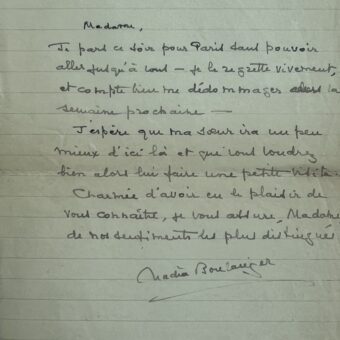 Madame,
Je pars ce soir pour Paris sans pouvoir
aller jusqu'à vous – je le regrette vivement,
et compte bien me dédommager alors la
semaine prochaine –
J'espère que ma sœur ira un peu
mieux d'ici là et que vous voudrez
bien alors lui faire une petite visite.
Charmée d'avoir eu le plaisir de
vous connaître, je vous assure, Madame
de nos sentiments les plus distingués
Nadia Boulanger